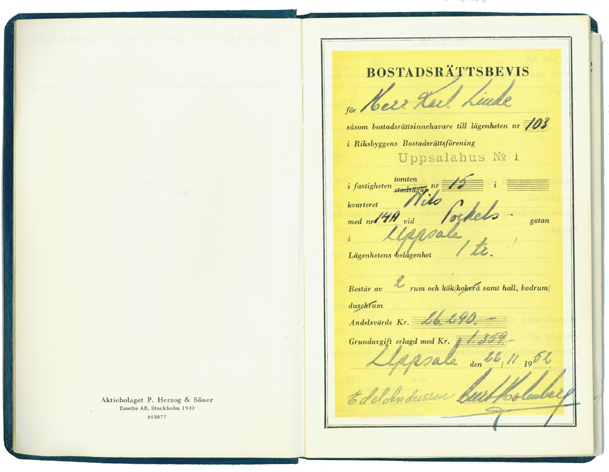 Aktiebolaget P. Herzog & Söner
Esselte AB, Stockholm 1949
909977
BOSTADSRÄTTSBEVIS
för Herr Karl Linde
såsom bostadsrättsinnehavare till lägenheten nr 103
i Riksbyggens Bostadsrättsförening
Uppsalahus № 1
i fastigheten tomten stadsägan nr 15 i
kvarteret Nils
med nr 14A vid Torkels- gatan
i Uppsala
Lägenhetens belägenhet 1 tr.
Består av 2 rum och kök/kokvrå samt hall, badrum/
duschrum
Andelsvärde Kr. 26.290.-
Grundavgift erlagd med Kr. 1.359-
Uppsala den 22/11 1952
Edel Andersson Curt Holmberg